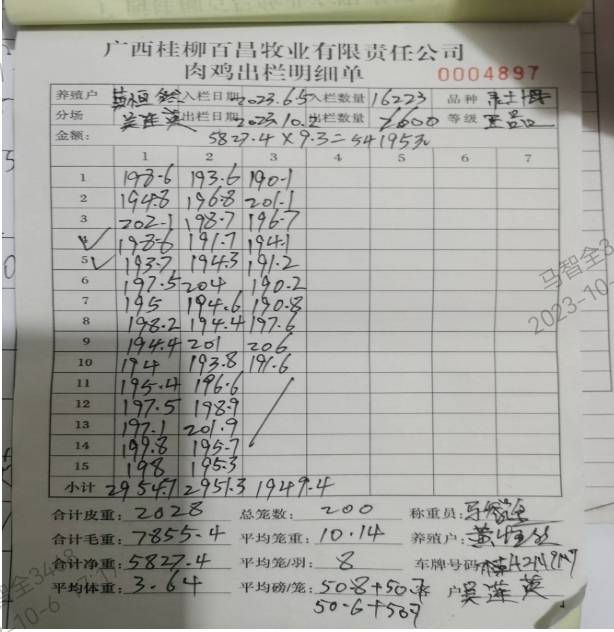 广西桂柳百昌牧业有限责任公司
肉鸡出栏明细单 0004897
养殖户 入栏日期 2023.6.5 入栏数量 16223 品种
分场 吴莲英 出栏日期 2023.10.5 出栏数量 2600 等级
金额: 5827.4×9.3=54195元
1 2 3 4 5 6 7
1 198.6 193.6 190.1
2 194.8 196.8 201.1
3 202.1 198.7 196.7
4 198.6 191.7 194.1
5 193.7 194.3 191.2
6 197.5 204 190.2
7 195 194.6 190.8
8 198.2 194.4 197.6
9 194.4 201 206
10 194 193.8 191.6
11 195.4 196.6
12 197.5 198.9
13 197.1 201.9
14 199.8 195.7
15 198 195.3
小计 2954.7 2951.3 1949.4
合计皮重: 2028 总笼数: 200 称重员:
合计毛重: 7855.4 平均笼重: 10.14 养殖户:
合计净重: 5827.4 平均笼/羽: 8 车牌号码:
平均体重: 3.64 平均磅/笼: 50.8+50.7 客户 吴莲英
50.6+50.7
马智全3
2023-10-